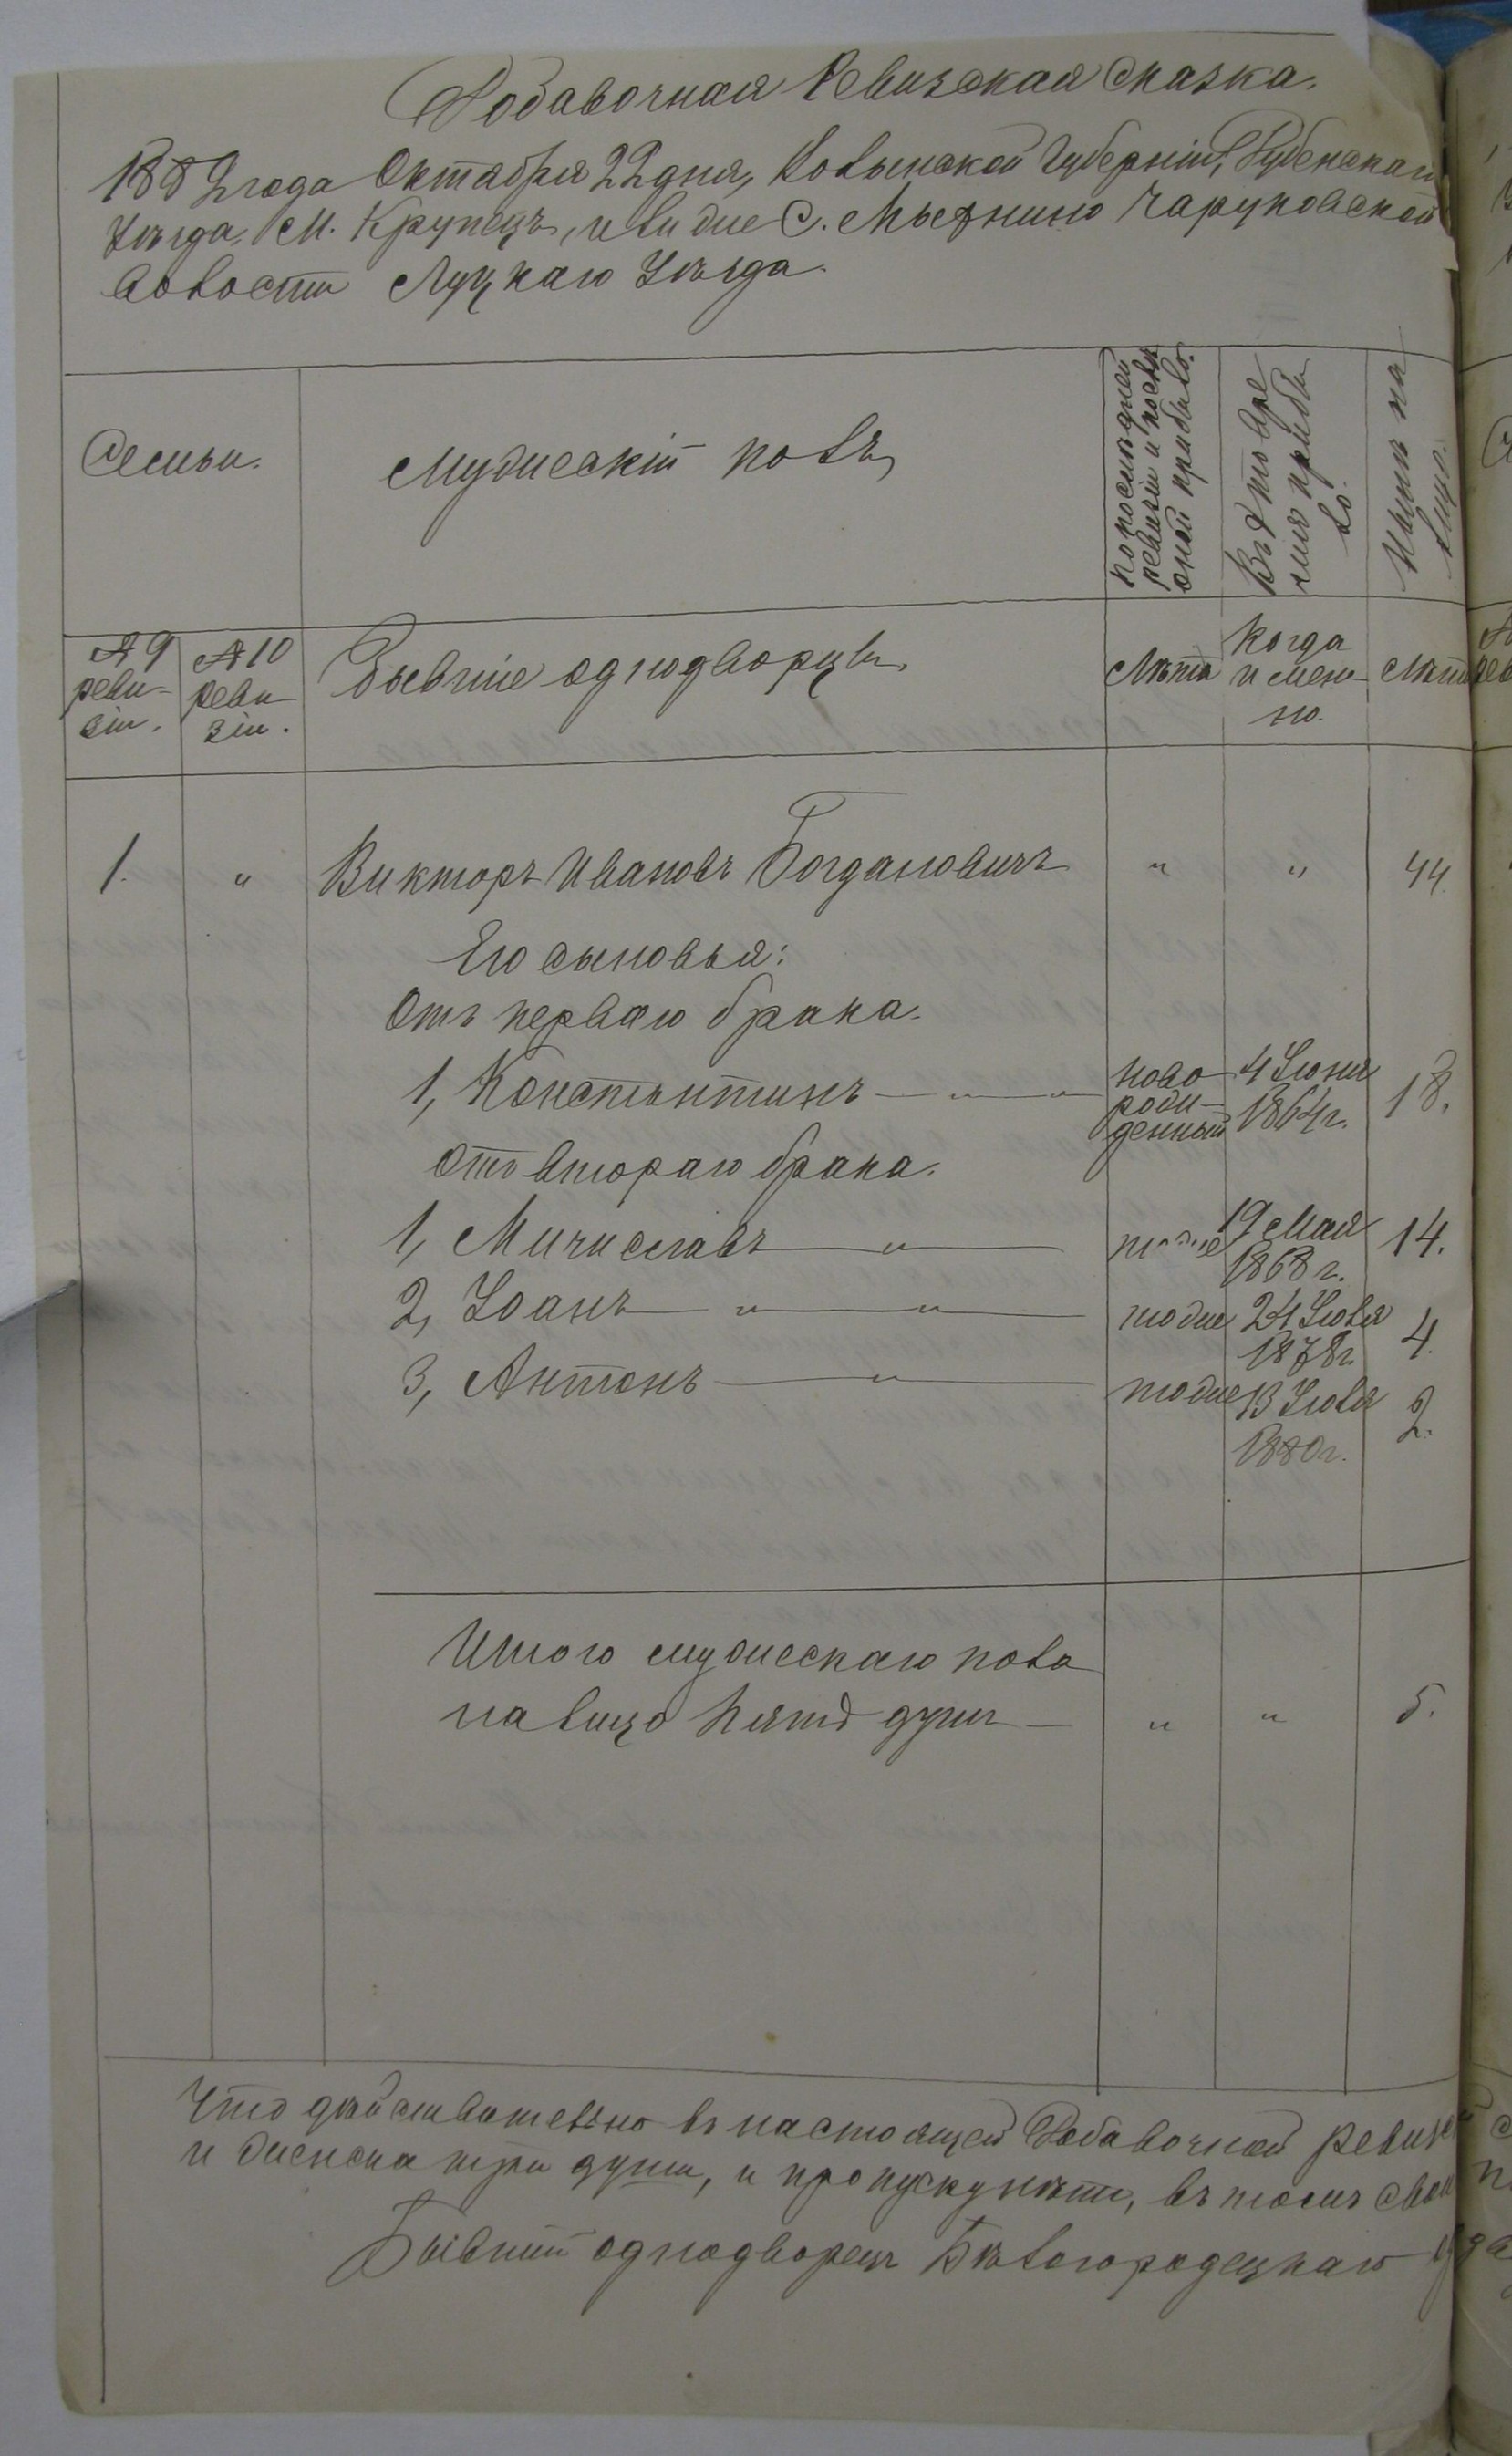 Добавочная Ревизская Сказка.
1882 года Октября 22 дня, Волынской Губерніи, Дубенскаго
Уѣзда, М. Крупецъ, или же С. Мъезнино Чаруковской
Волости Луцкаго Уѣзда.
Семьи.
Мужескій полъ,
По послѣдней
ревизіи и послѣ
оной прибыло.
Въ то вре
мя прибы
ло.
Нынѣ на
лицо.
№ 9
реви-
зіи.
№ 10
реви
зіи.
Бывшіе однодворцы,
Лѣта
Когда
имен-
но.
Лѣта
1. " Викторъ Ивановъ Богдановичъ " " 44.
Его сыновья:
Отъ перваго брака.
1, Константинъ — " — " ново рож- денный 4 Іюня 1864 г. 18.
Отъ втораго брака.
1, Мичиславъ — " — тоже 19 Мая 1868 г. 14.
2, Іоанъ — " — " — тоже 24 Іюля 1878 г. 4.
3, Антонъ — " — тоже 13 Іюля 1880 г. 2.
Итого мужескаго пола
на лицо пять душъ — " " 5.
Что дѣйствительно въ настоящей Добавочной ревизс
и женска три души, и пропуску нѣтъ, въ томъ
Бывшій однодворецъ Бѣлогородецкаго